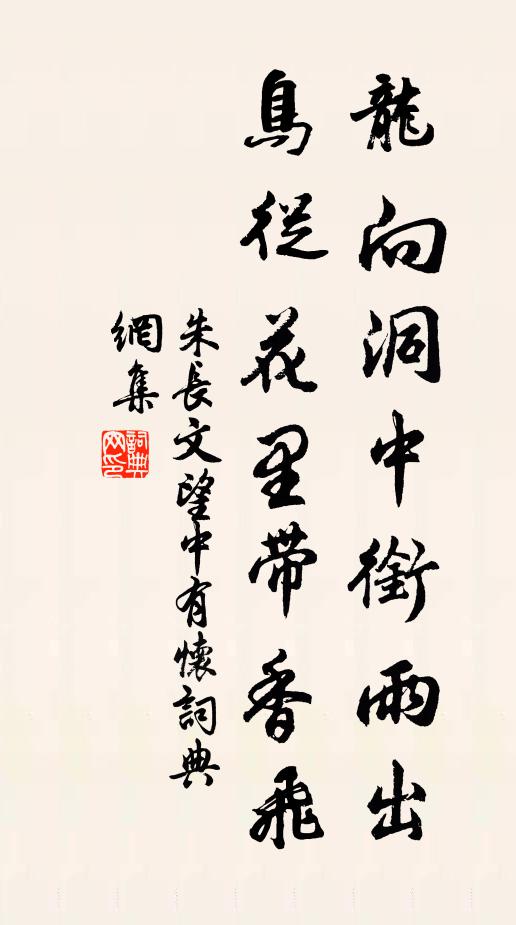 龍向洞中銜雨出
鳥從花里帶香飛
朱長文望中有懷詞典
網集
詞典
网印